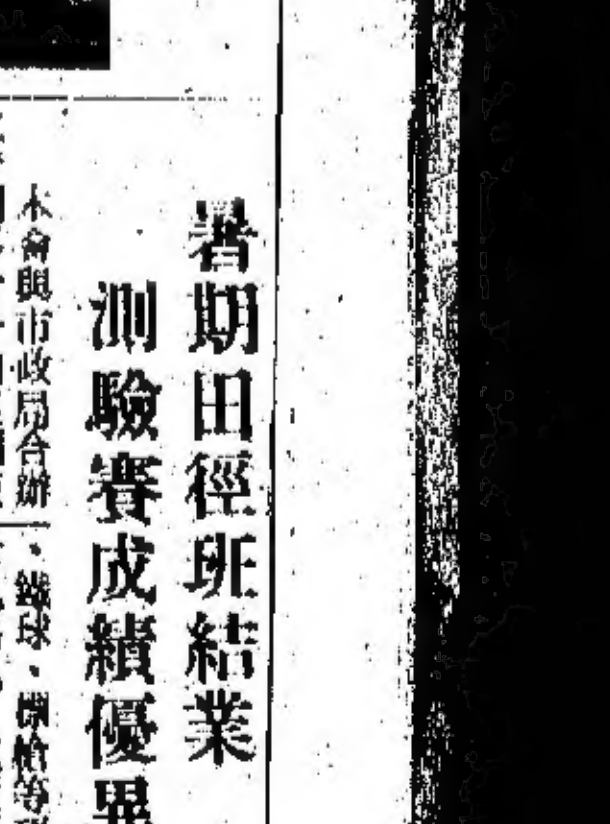 暑期田徑班結業
測驗賽成績優異
本會與市政局合辦
、鐵球、欄槍等